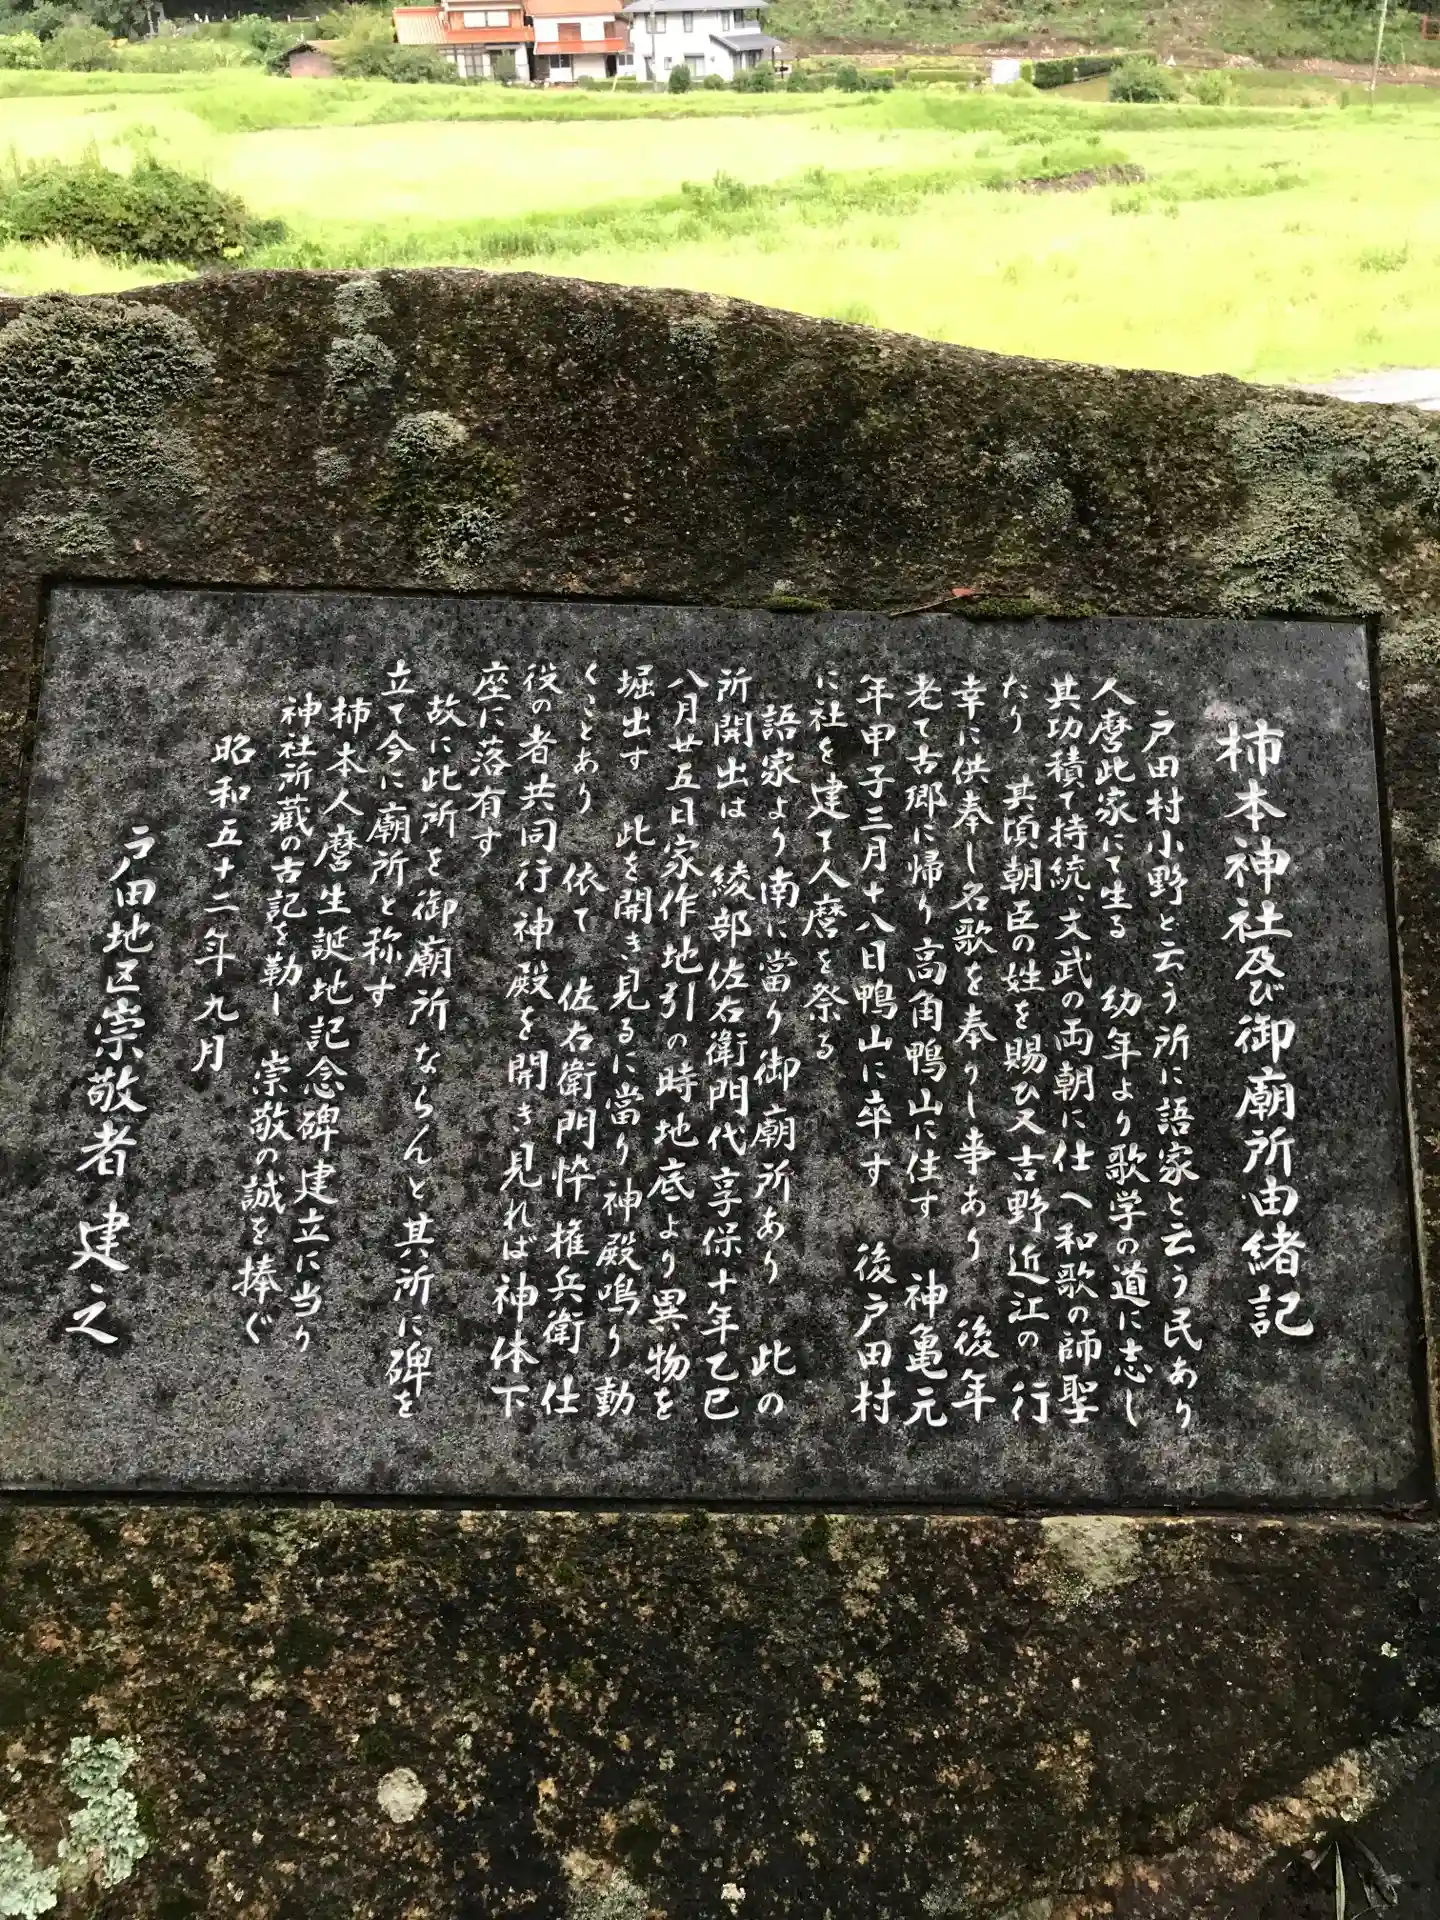 柿本神社及び御廟所由緒記
戸田村小野と云う所に語家と云う民あり
人麿此家にて生る 幼年より歌学の道に志し
其功積て持統、文武の両朝に仕へ和歌の師聖
たり 其頃朝臣の姓を賜ひ又吉野近江の行
幸に供奉し名歌を奉りし事あり 後年
老て古郷に帰り高角鴨山に住す 神亀元
年甲子三月十八日鴨山に卒す 後戸田村
に社を建て人麿を祭る
語家より南に當り御廟所あり 此の
所開出は 綾部佐右衛門代享保十年乙巳
八月廿五日家作地引の時地底より異物を
堀出す 此を開き見るに當り神殿鳴り動
くことあり 依て 佐右衛門忰権兵衛仕
役の者共同行神殿を開き見れば神体下
座に落有す
故に此所を御廟所ならんと其所に碑を
立て今に廟所と称す
柿本人麿生誕地記念碑建立に当り
神社所蔵の古記を勒し 崇敬の誠を捧ぐ
昭和五十二年九月
戸田地区崇敬者建之